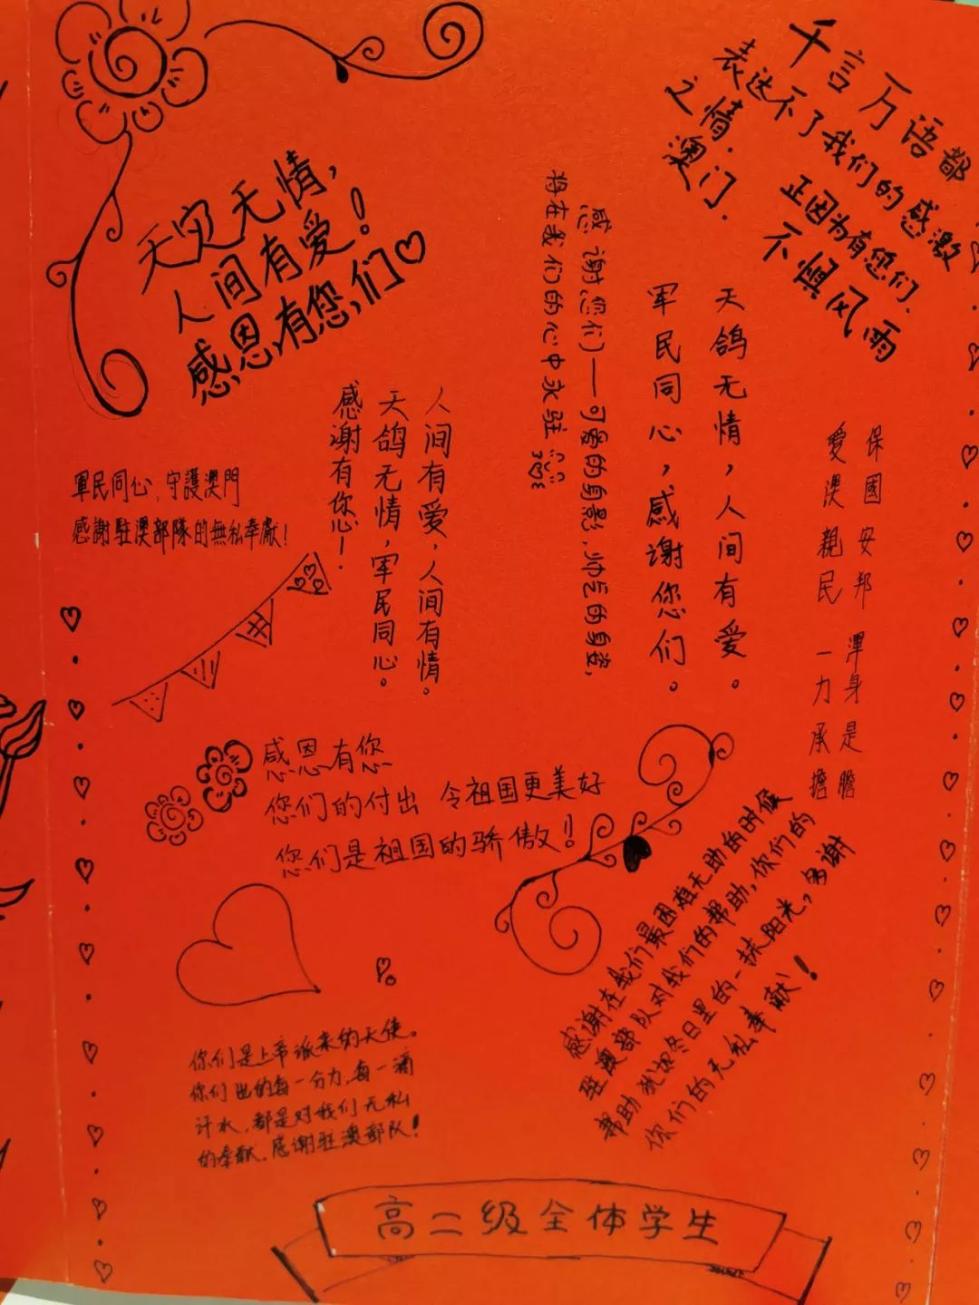 天灾无情,
人间有爱!
感恩有您们
千言万语都
表达不了我们的感激
之情.
正因为有您们.
澳门.
不惧风雨
感谢您们——可爱的身影,帅气的身姿,
将在我们的心中永驻
天鸽无情,人间有爱。
军民同心,感谢您们。
保國安邦 渾身是膽
愛澳親民 一力承擔
人间有爱,人间有情。
天鸽无情,军民同心。
感谢有您!
軍民同心,守護澳門
感謝駐澳部隊的無私奉獻!
感恩有您
您们的付出 令祖国更美好
您们是祖国的骄傲!
感谢在我们最困难无助的时候
驻澳部队对我们的帮助,你们的
帮助犹如冬日里的一抹阳光,多谢
你们的无私奉献!
你们是上帝派来的天使。
你们出的每一分力,每一滴
汗水,都是对我们无私
的奉献。感谢驻澳部队!
高二级全体学生